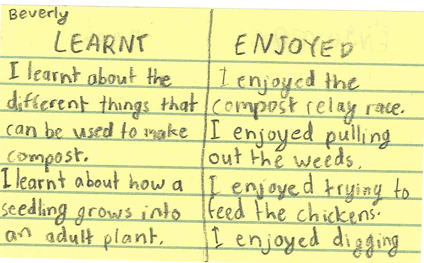 Beverly
LEARNT
I learnt about the
different things that
can be used to make
compost.
I learnt about how a
seedling grows into
an adult plant.
ENJOYED
I enjoyed the
compost relay race.
I enjoyed pulling
out the weeds.
I enjoyed trying to
feed the chickens.
I enjoyed digging